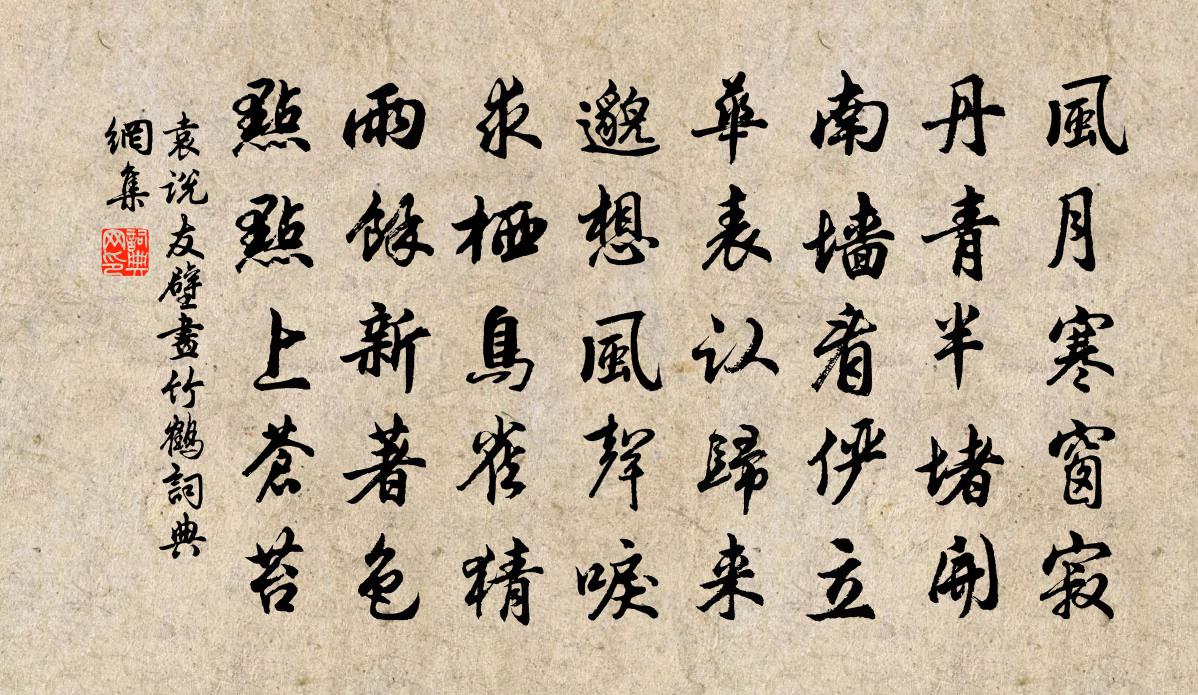 風月寒窗寂
丹青半堵開
南墻看俨立
華表认歸来
邈想風聲唳
求栖鳥雀猜
雨餘新著色
點點上蒼苔
袁说友壁畫竹鶴詞典
網集
詞典
网印